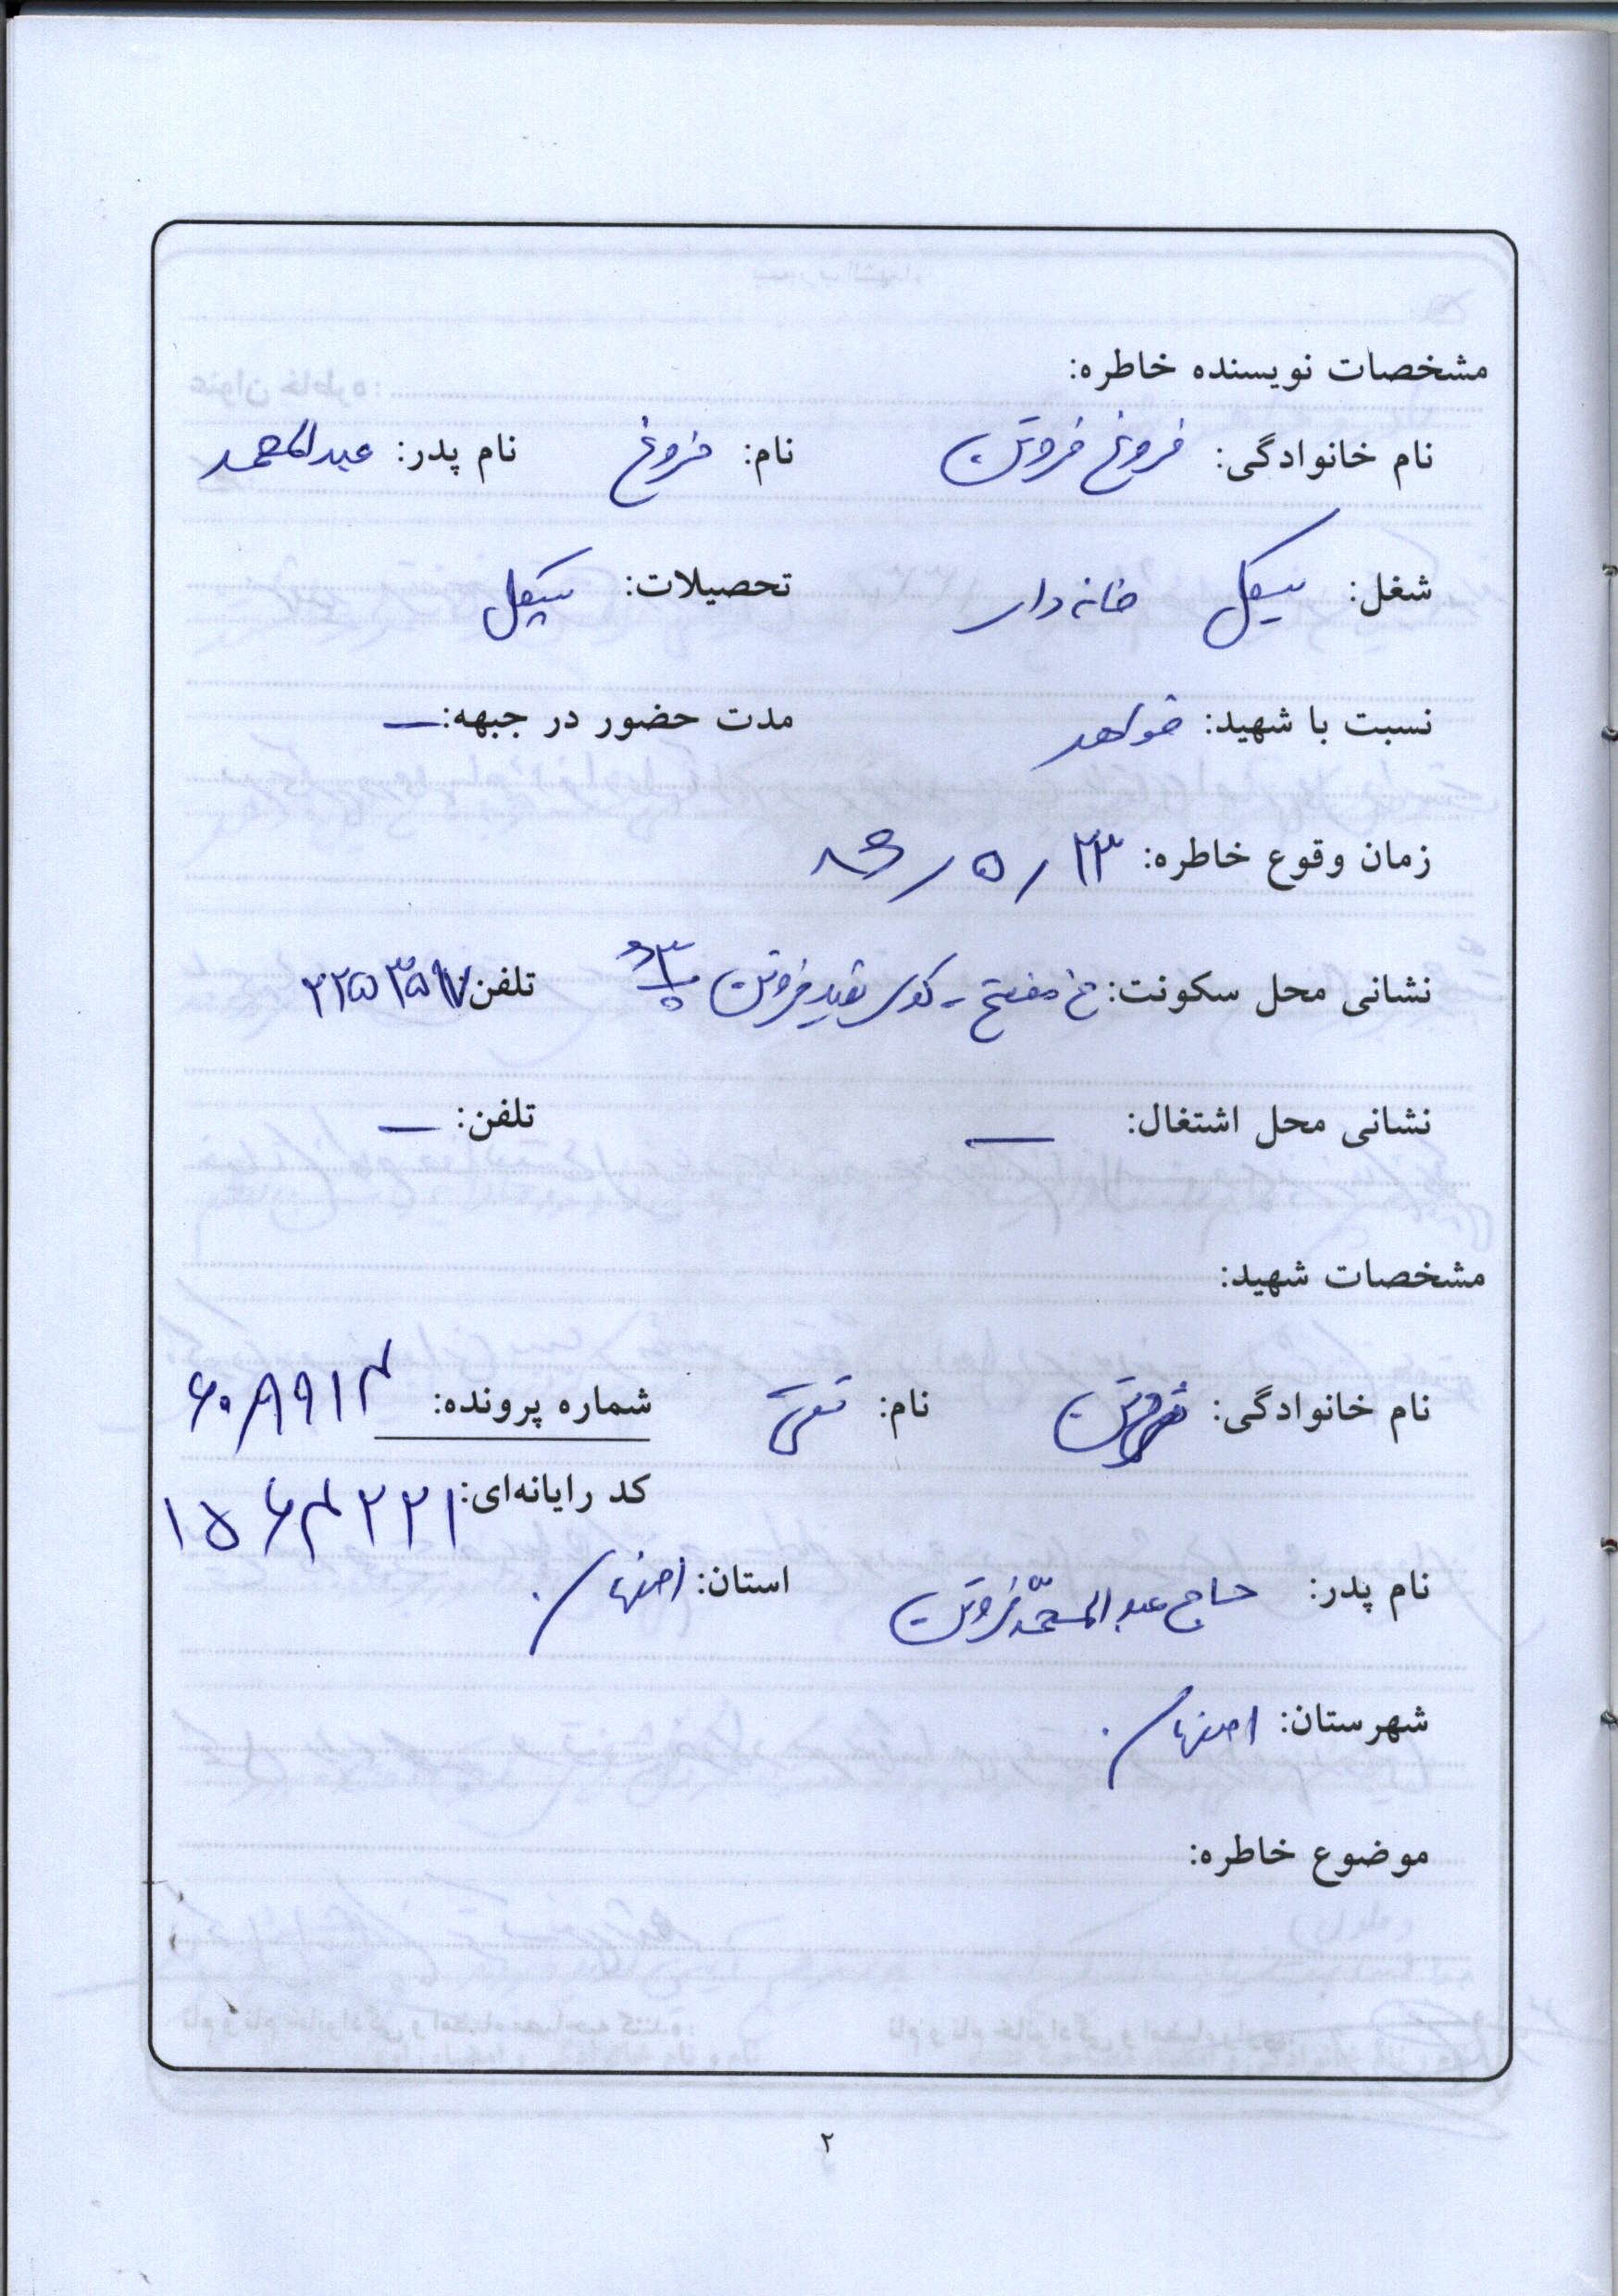 مشخصات نویسنده خاطره:
نام خانوادگی: فروغ فروتن نام: فروغ نام پدر: عبدالمحمد
شغل: سیکل خانه دار تحصیلات: سیکل
نسبت با شهید: خواهر مدت حضور در جبهه: —
زمان وقوع خاطره: ۲۳ / ۵ / ۸۶
نشانی محل سکونت: خ مفتح - کوی شهید فروتن تلفن: ۲۲۵۳۵۹۷
نشانی محل اشتغال: — تلفن: —
مشخصات شهید:
نام خانوادگی: فروتن نام: تقی شماره پرونده: ۶۰۸۹۱۴
کد رایانه‌ای: ۱۵۶۴۲۲۱
نام پدر: حاج عبدالمحمّد فروتن استان: اصفهان
شهرستان: اصفهان
موضوع خاطره:
۲